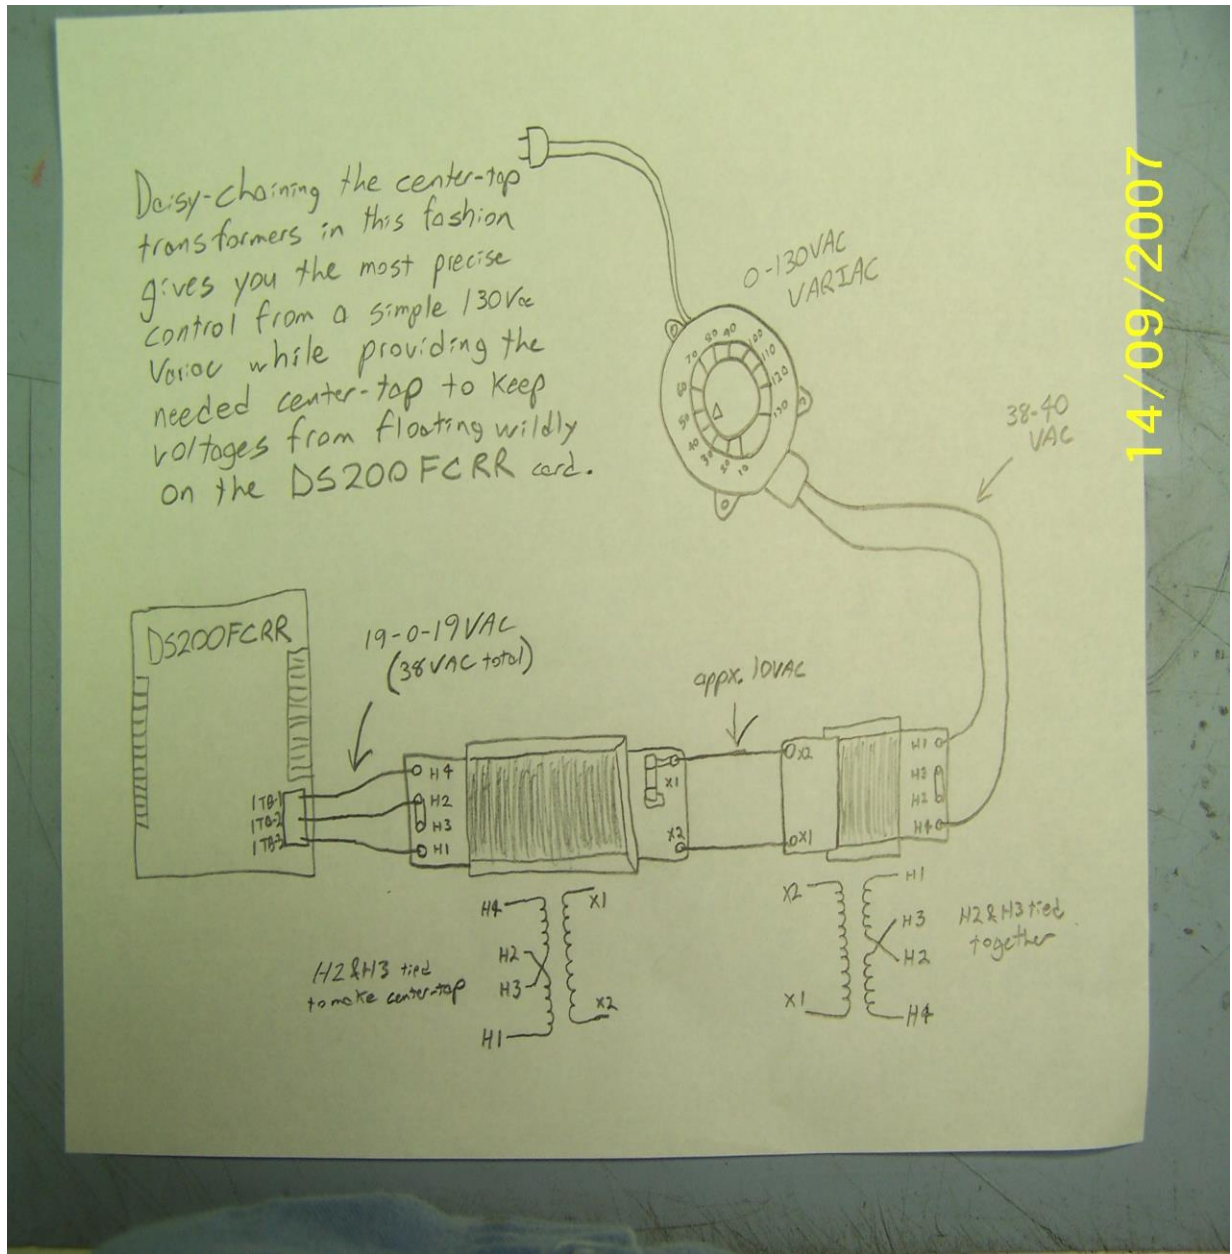 Daisy-chaining the center-tap
transformers in this fashion
gives you the most precise
control from a simple 130Vac
Variac while providing the
needed center-tap to keep
voltages from floating wildly
on the DS200FCRR card.
0-130VAC
VARIAC
14/09/2007
10
20
30
40
50
60
70
80
90
100
110
120
130
38-40
VAC
DS200FCRR
19-0-19VAC
(38VAC total)
appx. 10VAC
1TB-1
1TB-2
1TB-3
H4
H2
H3
H1
X1
X2
X2
X1
H1
H3
H2
H4
H4
H2
H3
H1
X1
X2
H2&H3 tied
to make center-tap
X2
X1
H1
H3
H2
H4
H2&H3 tied
together